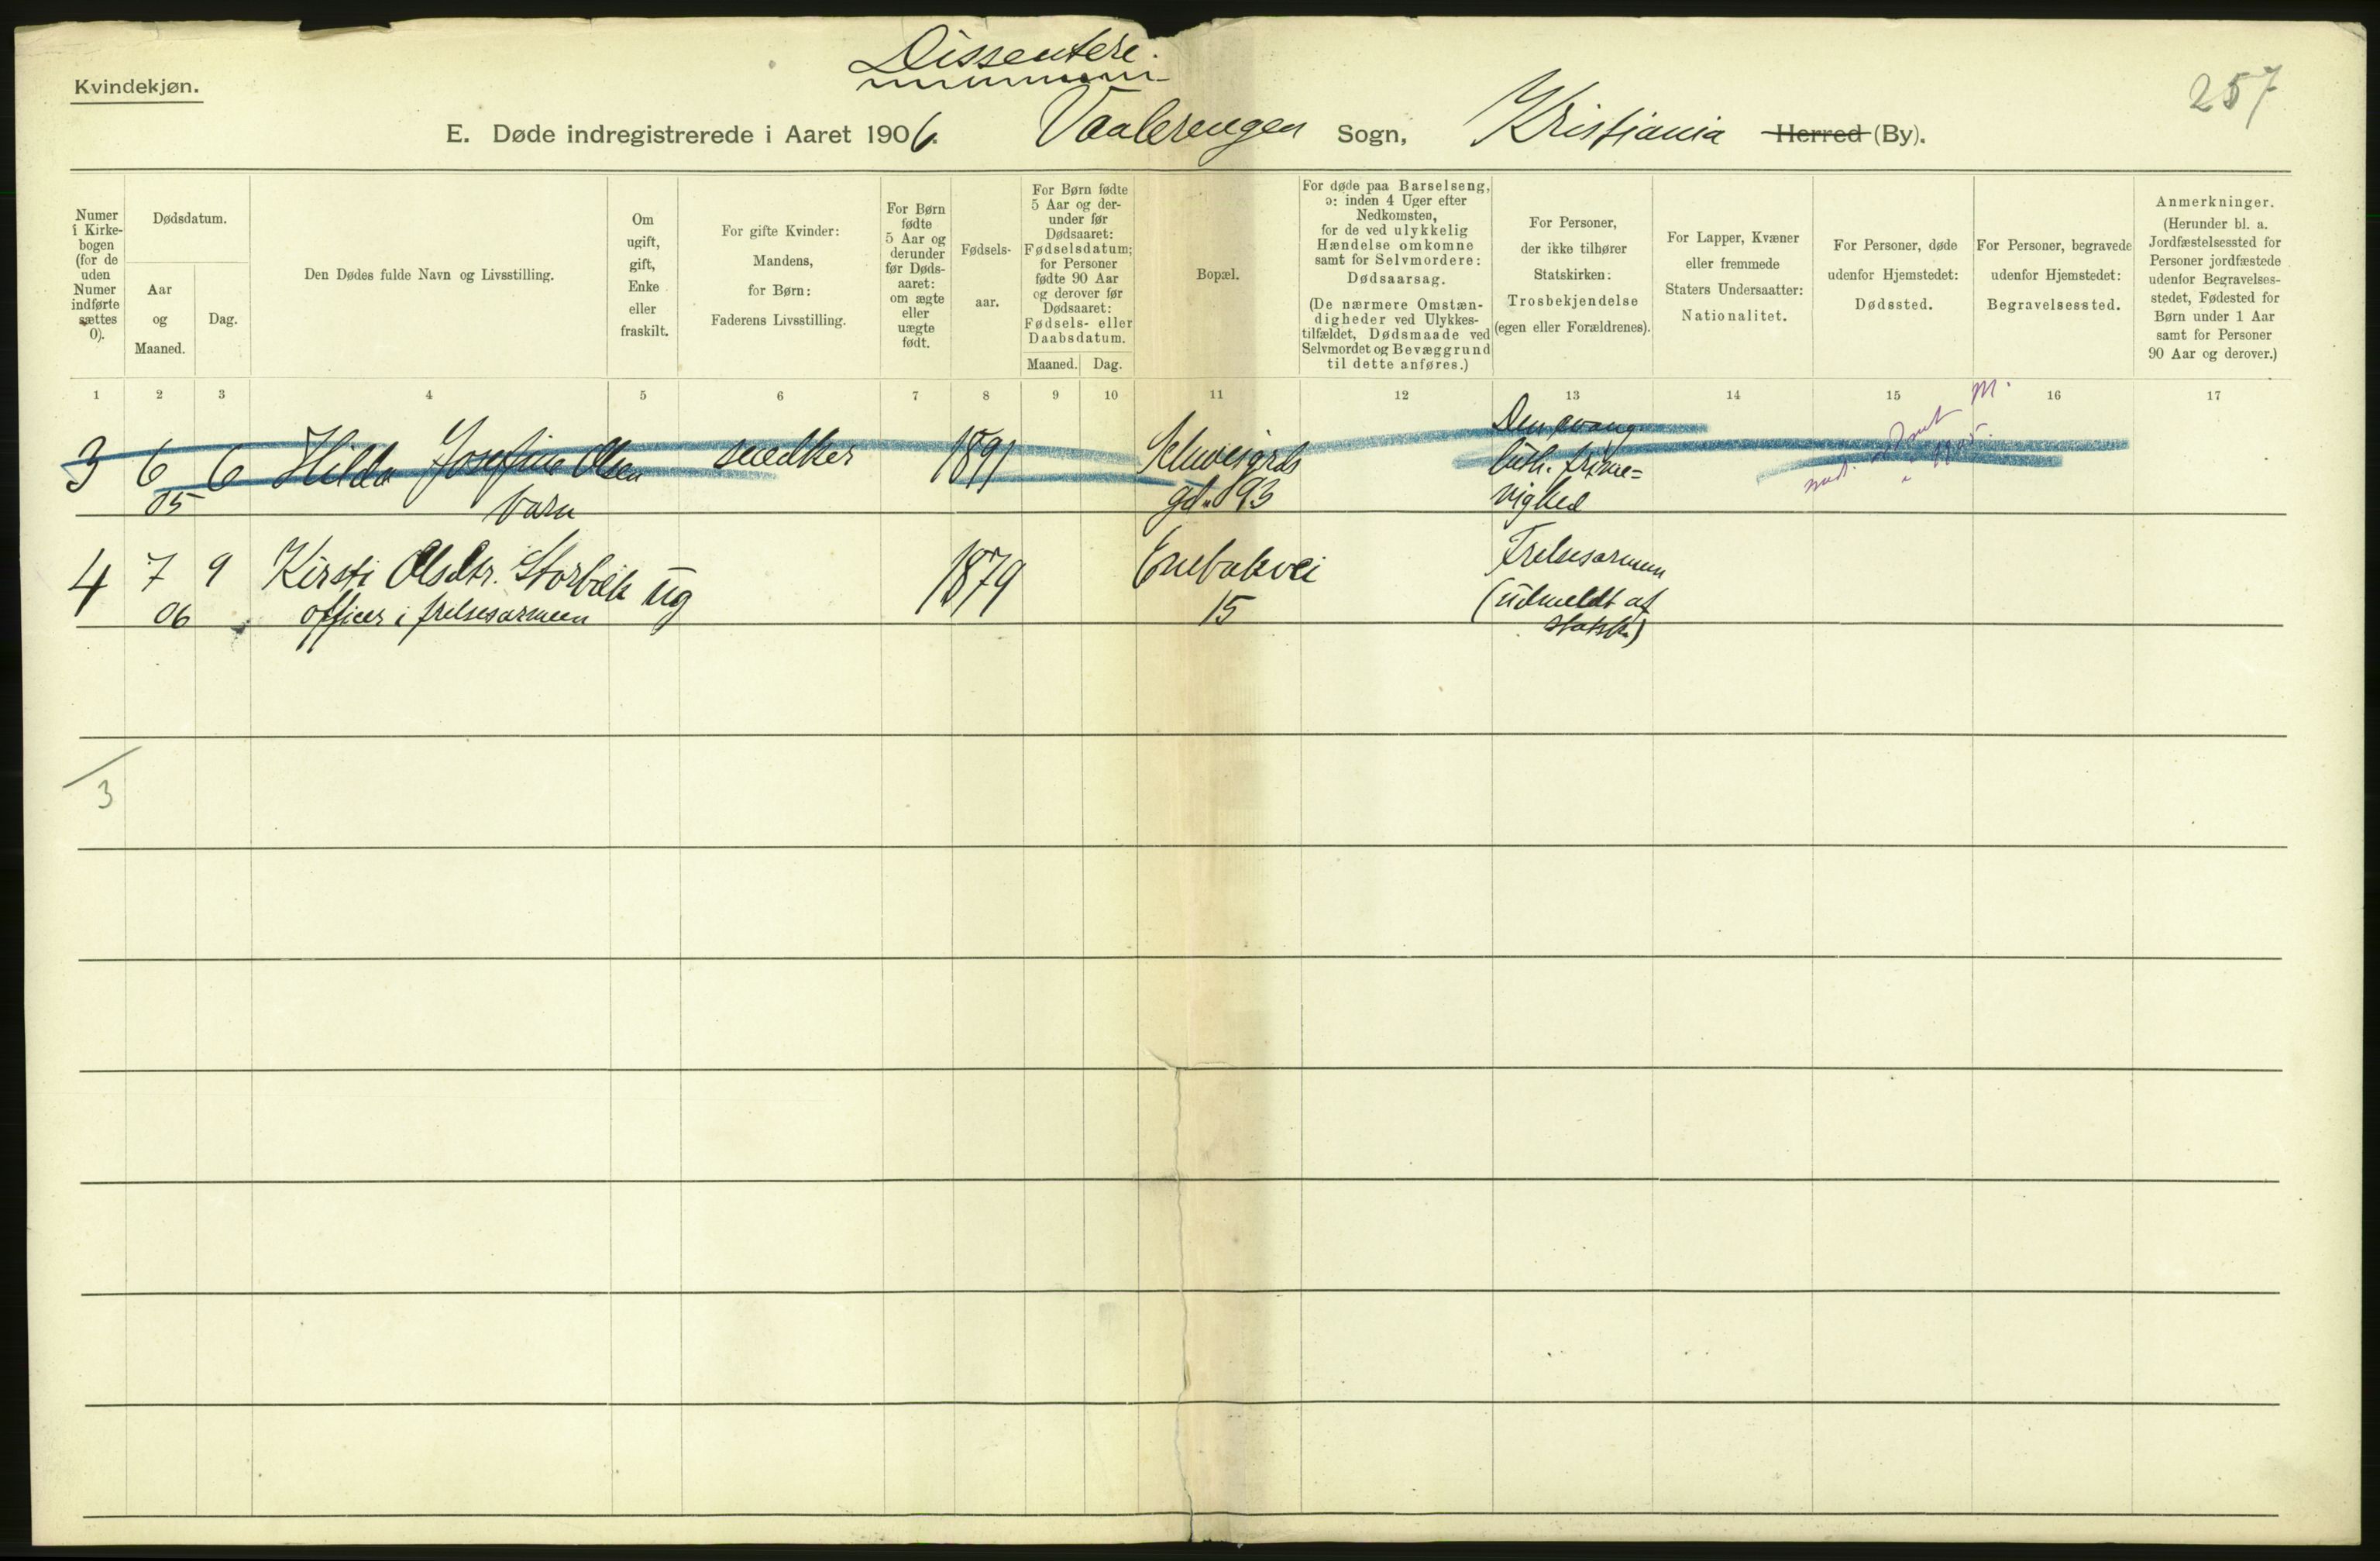 Dissentere.
Kvindekjøn.
257
E. Døde indregistrerede i Aaret 1906. Vaalerengen Sogn, Kristiania Herred (By).
Numer
i Kirke-
bogen
(for de
uden
Numer
indførte
sættes
0).
Dødsdatum.
Aar
og
Maaned.
Dag.
Den Dødes fulde Navn og Livsstilling.
Om
ugift,
gift,
Enke
eller
fraskilt.
For gifte Kvinder:
Mandens,
for Børn:
Faderens Livsstilling.
For Børn
fødte
5 Aar og
derunder
før Døds-
aaret:
om ægte
eller
uægte
født.
Fødsels-
aar.
For Børn fødte
5 Aar og der-
under før
Dødsaaret:
Fødselsdatum;
for Personer
fødte 90 Aar
og derover før
Dødsaaret:
Fødsels- eller
Daabsdatum.
Maaned. Dag.
Bopæl.
For døde paa Barselseng,
ɔ: inden 4 Uger efter
Nedkomsten,
for de ved ulykkelig
Hændelse omkomne
samt for Selvmordere:
Dødsaarsag.
(De nærmere Omstæn-
digheder ved Ulykkes-
tilfældet, Dødsmaade ved
Selvmordet og Bevæggrund
til dette anføres.)
For Personer,
der ikke tilhører
Statskirken:
Trosbekjendelse
(egen eller Forældrenes).
For Lapper, Kvæner
eller fremmede
Staters Undersaatter:
Nationalitet.
For Personer, døde
udenfor Hjemstedet:
Dødssted.
For Personer, begravede
udenfor Hjemstedet:
Begravelsessted.
Anmerkninger.
(Herunder bl. a.
Jordfæstelsessted for
Personer jordfæstede
udenfor Begravelses-
stedet, Fødested for
Børn under 1 Aar
samt for Personer
90 Aar og derover.)
1 2 3 4 5 6 7 8 9 10 11 12 13 14 15 16 17
3 6 6 Hilda Josefine Olsen snedker 1891 Schweigrds
05 barn gd. 93
Den evang.
luth. frime-
nighed
4 7 9 Kirsti Olsdtr. Storbæk ug 1879 Enebakvei
06 officer i frelsesarmeen 15
Frelsesarmeen
(udmeldt af
statsk.)
3